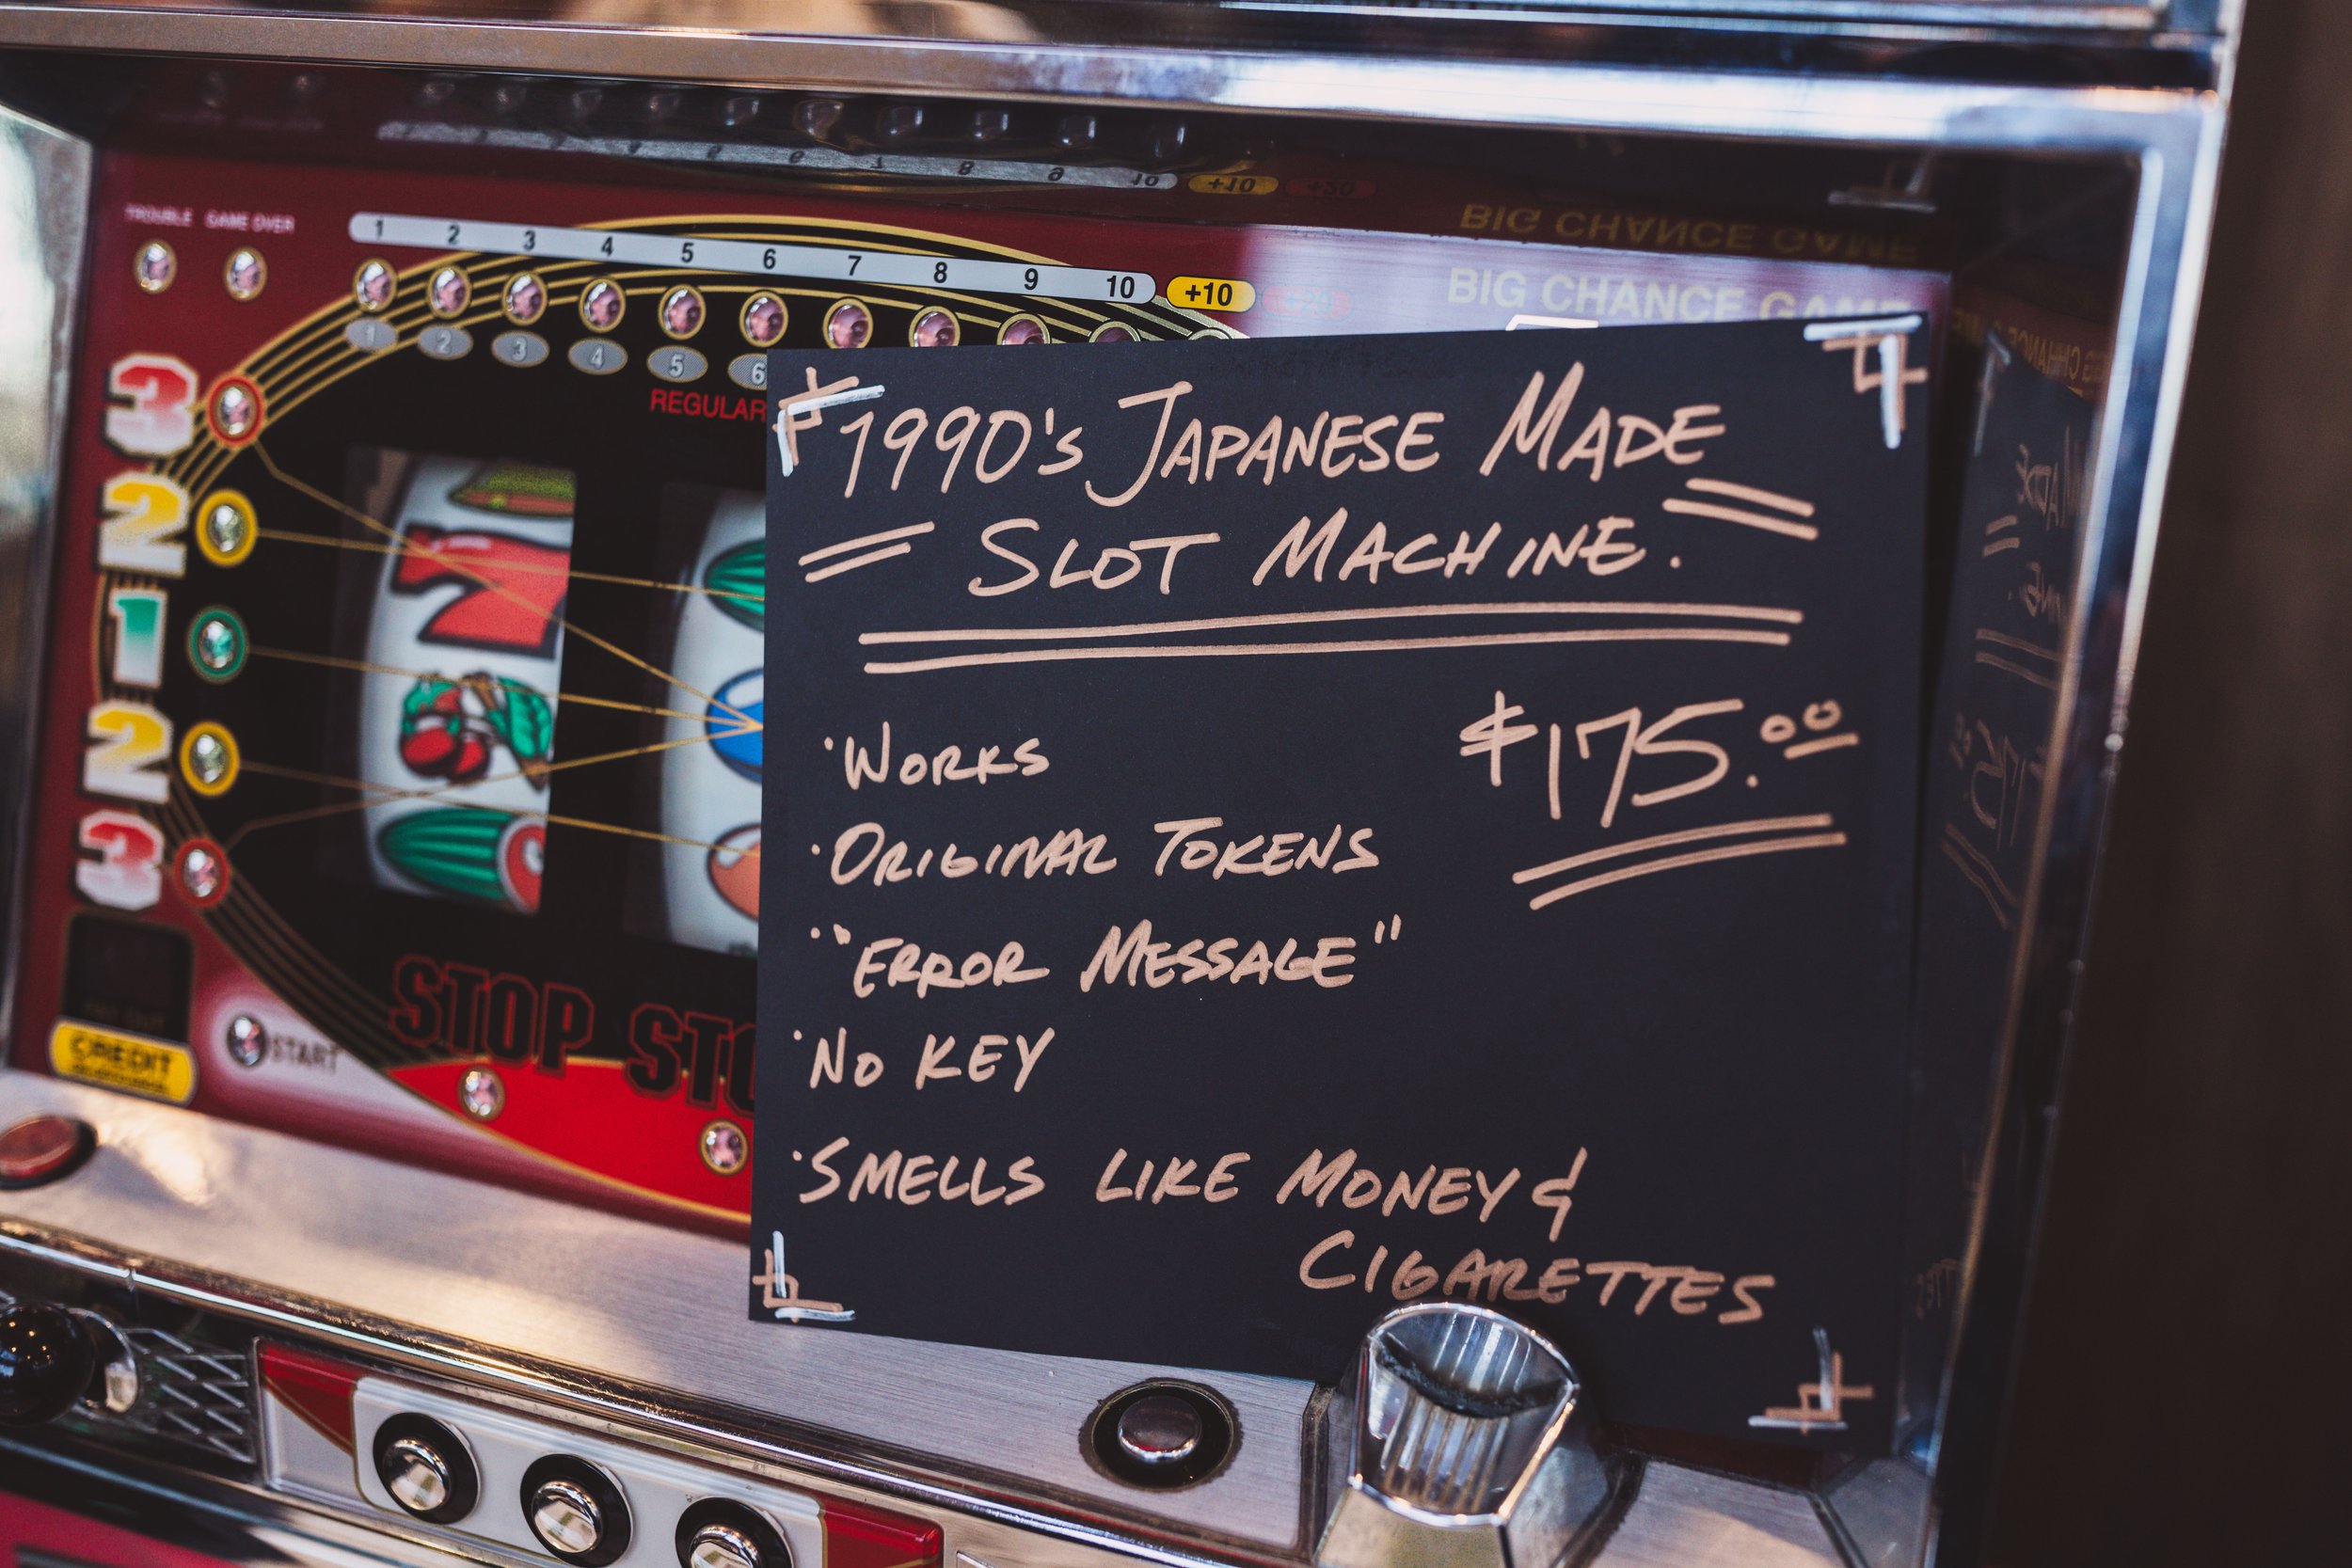 TROUBLE GAME OVER
1 2 3 4 5 6 7 8 9 10 +10 +20
BIG CHANCE GAME
1 2 3 4 5 6
REGULAR
3
2
1
2
3
7
STOP STO
CREDIT
START
1990's JAPANESE MADE
SLOT MACHINE.
$175.00
·WORKS
·ORIGINAL TOKENS
·"ERROR MESSAGE"
·NO KEY
·SMELLS LIKE MONEY &
CIGARETTES